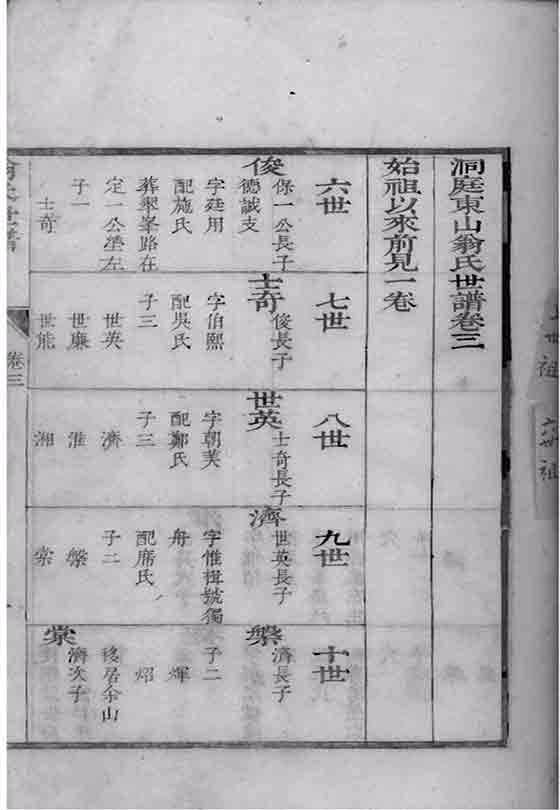 洞庭東山翁氏世譜卷三
始祖以來前見一卷
六世
俊
保一公長子
德誠支
字廷用
配施氏
葬翠峯路在
定一公塋左
子一
士奇
七世
士奇
俊長子
字伯熙
配吳氏
子三
世英
世廉
世能
八世
世英
士奇長子
字朝美
配鄭氏
子三
濟
淮
湘
九世
濟
世英長子
字惟楫號獨
舟
配席氏
子二
槃
棠
十世
槃
濟長子
子二
煇
炤
移居余山
棠
濟次子
卷三